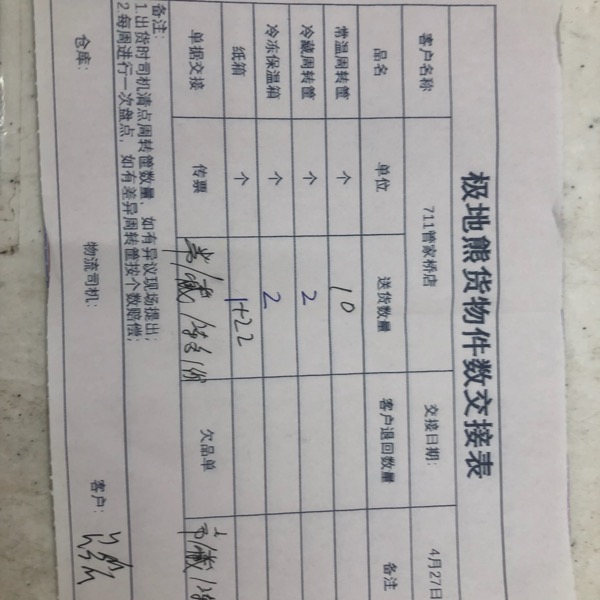 极地熊货物件数交接表
客户名称 711管家桥店 交接日期: 4月27日
品名 单位 送货数量 客户退回数量 备注
常温周转筐 个 10
冷藏周转筐 个 2
冷冻保温箱 个 2
纸箱 个 1+22
单据交接 传票 欠品单
备注:
1.出货时司机清点周转筐数量,如有异议现场提出;
2.每周进行一次盘点,如有差异周转筐按个数赔偿;
仓库: 物流司机: 客户: